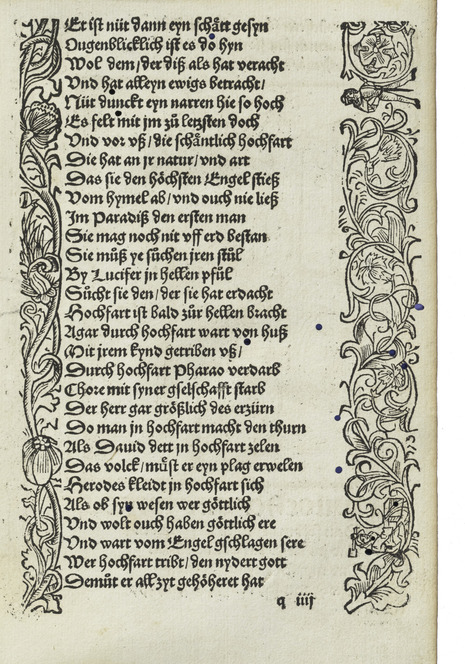 Et ist nüt dann eyn schått gesyn
Ougenblicklich ist es do hyn
Wol dem / der diß als hat veracht
Vnd hat alleyn ewigs betracht /
Nüt dunckt eyn narren hie so hoch
Es felt mit jm zů letzsten doch
Vnd vor vß / die schåntlich hochfart
Die hat an jr natur / vnd art
Das sie den höchsten Engel stieß
Vom hymel ab / vnd ouch nie ließ
Jm Paradiß den ersten man
Sie mag noch nit vff erd bestan
Sie můß ye sůchen jren stůl
By Lucifer jn hellen pfůl
Sůcht sie den / der sie hat erdacht
Hochfart ist bald zůr hellen bracht
Agar durch hochfart wart von huß
Mit jrem kynd getriben vß /
Durch hochfart Pharao verdarb
Chore mit syner gselschafft starb
Der herr gar größlich des erzürn
Do man jn hochfart macht den thurn
Als Dauid dett jn hochfart zelen
Das volck / můst er eyn plag erwelen
Herodes kleidt jn hochfart sich
Als ob syn wesen wer göttlich
Vnd wolt ouch haben göttlich ere
Vnd wart vom Engel gschlagen sere
Wer hochfart tribt / den nydert gott
Demůt er allzyt gehöheret hat
q iiij